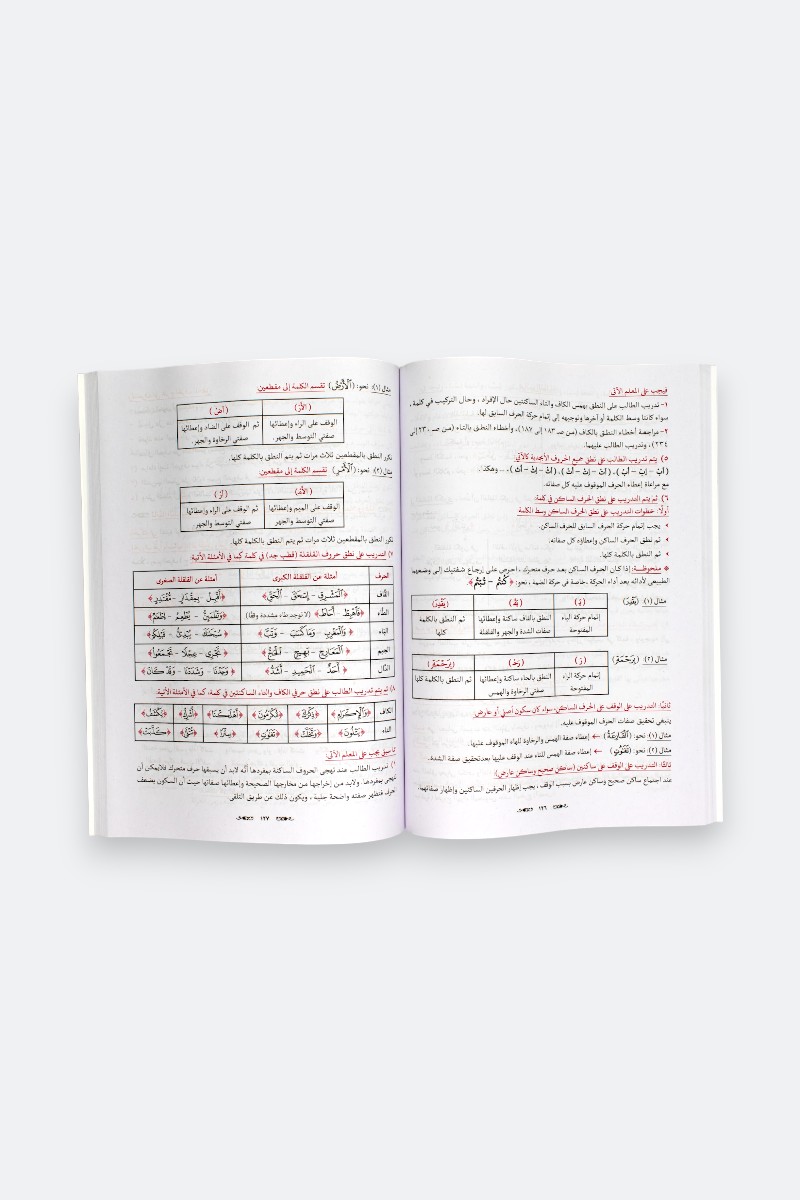 فيجب على المعلم الآتي
١- تدريب الطالب على النطق بهمس الكاف والتاء الساكنتين حال الإفراد ، وحال التركيب في كلمة ،
سواء كانتا وسط الكلمة أو آخرها وتوجيهه إلى إتمام حركة الحرف السابق لها.
٢- مراجعة أخطاء النطق بالكاف (من صـ ١٨٣ إلى ١٨٧)، وأخطاء النطق بالتاء (من صـ ٢٣٠ إلى
٢٣٤) ، وتدريب الطالب عليهما.
٥) يتم تدريب الطالب على نطق جميع الحروف الأبجدية كالآتي:
(أَبْ – إِبْ – أُبْ) ، (أَتْ – إِتْ – أُتْ) ، (أَثْ – إِثْ – أُثْ) ، ... وهكذا .
مع مراعاة إعطاء الحرف الموقوف عليه كل صفاته.
٦) ثم يتم التدريب على نطق الحرف الساكن في كلمة:
أولًا: خطوات التدريب على نطق الحرف الساكن وسط الكلمة
يجب إتمام حركة الحرف السابق للحرف الساكن.
ثم نطق الحرف الساكن وإعطاؤه كل صفاته.
ثم النطق بالكلمة كلها.
* ملحوظة: إذا كان الحرف الساكن بعد حرف متحرك ، احرص على إرجاع شفتيك إلى وضعهما
الطبيعي لأدائه بعد أداء الحركة ، خاصة في حركة الضمة ، نحو: ﴿كُنتُمْ – تُبْتُمْ﴾.
مثال (١): (يَقْدِرُ) (يَـ) (قْـ) (يَقْدِرُ)
إتمام حركة الياء المفتوحة النطق بالقاف ساكنة وإعطائها صفات الشدة والجهر والقلقلة ثم النطق بالكلمة كلها
مثال (٢): (بِرَحْمَةٍ) (رَ) (رَحْـ) (بِرَحْمَةٍ)
إتمام حركة الراء المفتوحة النطق بالحاء ساكنة وإعطائها صفتي الرخاوة والهمس ثم النطق بالكلمة كلها
ثانيًا: التدريب على الوقف على الحرف الساكن، سواء كان سكون أصلي أو عارض
ينبغي تحقيق صفات الحرف الموقوف عليه.
مثال (١): نحو: (ٱلْقَارِعَةُ) ← إعطاء صفة الهمس والرخاوة للهاء الموقوف عليها.
مثال (٢): نحو: (تَفَٰوُتٍ) ← إعطاء صفة الهمس للتاء عند الوقف عليها بعد تحقيق صفة الشدة.
ثالثًا: التدريب على الوقف على ساكنين (ساكن صحيح وساكن عارض)
عند اجتماع ساكن صحيح وساكن عارض بسبب الوقف ، يجب إظهار الحرفين الساكنين وإظهار صفاتهما.
١٢٦
مثال (١): نحو: (ٱلْأَرْضُ) تقسم الكلمة إلى مقطعين
(الأَرْ) (أضْ)
الوقف على الراء وإعطائها صفتي التوسط والجهر. ثم الوقف على الضاد وإعطائها صفتي الرخاوة والجهر.
يكرر النطق بالمقطعين ثلاث مرات ثم يتم النطق بالكلمة كلها.
مثال (٢): نحو: (ٱلْأَمْرِ) تقسم الكلمة إلى مقطعين
(الأَمْ) (أرْ)
الوقف على الميم وإعطائها صفتي التوسط والجهر ثم الوقف على الراء وإعطائها صفتي التوسط والجهر
يكرر النطق بالمقطعين ثلاث مرات ثم يتم النطق بالكلمة كلها.
٧) التدريب على نطق حروف القلقلة (قطب جد) في كلمة كما في الأمثلة الآتية
الحرف أمثلة عن القلقلة الكبرى أمثلة عن القلقلة الصغرى
القاف ﴿ٱلْمَشْرِقِ – إِسْحَٰقَ – ٱلْحَقُّ﴾ ﴿أَقْبَلَ – بِمِقْدَارٍ – مُّقْتَدِرٍ﴾
الطاء ﴿فَٱهْبِطْ – أَحَاطَ﴾ (لا توجد طاء مشددة وقفًا) ﴿وَتَطْمَئِنُّ – يُطْعِمُ – إِطْعَٰمُ﴾
الباء ﴿وَٱلْمَغْرِبِ – وَمَا كَسَبَ – وَتَبَّ﴾ ﴿سُبْحَٰنَكَ – يُبْدِئُ – قَبْلِكُمْ﴾
الجيم ﴿ٱلْمَعَارِجِ – بَهِيجٍ – ٱلْحَجُّ﴾ ﴿تَجْرِى – عِجْلًا – تَجْمَعُوا۟﴾
الدال ﴿أَحَدٌ – ٱلْحَمِيدِ – أَشَدُّ﴾ ﴿وَعِدْنَا – وَشَدَدْنَا – وَقَدْ كَانَ﴾
٨) ثم يتم تدريب الطالب على نطق حرفي الكاف والتاء الساكنتين في كلمة، كما في الأمثلة الآتية:
الكاف ﴿وَٱلْإِكْرَامِ﴾ ﴿ذِكْرَكَ﴾ ﴿تُكْرِمُونَ﴾ ﴿أَهْلَكْنَا﴾ ﴿أَشْرِكْ﴾ ﴿يَكْشِفُ﴾
التاء ﴿يَتْلُونَ﴾ ﴿تَفَٰوُتٍ﴾ ﴿سِتْرًا﴾ ﴿تُتْلَىٰ﴾ ﴿كَذَّبَتْ﴾
يجب على المعلم الآتي:
١) تدريب الطالب عند تهجي الحروف الساكنة بمفردها أنّه لابد أن يسبقها حرف متحرك فلا يمكن أن
تهجى بمفردها ، ولابد من إخراجها من مخارجها الصحيحة وإعطائها صفاتها حيث أن السكون يضعف
الحرف فتظهر صفته واضحة جلية ، ويكون ذلك عن طريق التلقي
١٢٧